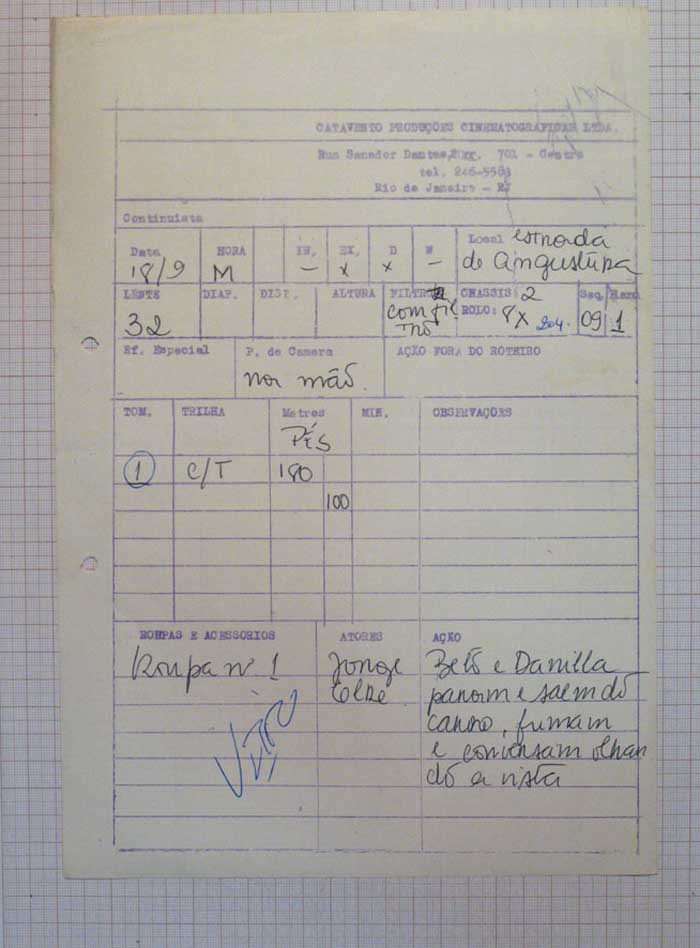 CATAVENTO PRODUÇÕES CINEMATOGRAFICAS LTDA.
Rua Senador Dantas, 701 - Centro
tel. 246-5563
Rio de Janeiro - RJ
Continuista
Data HORA IN. EX. D N Local estrada
18/9 M — x x — de Angustura
LENTE DIAF. DIST. ALTURA FILTRO CHASSIS: 2 Seq.
32 com fil ROLO: 8X 09 1
tro
Ef. Especial P. de Camera AÇÃO FORA DO ROTEIRO
na mão.
TOM. TRILHA Metros MIN. OBSERVAÇÕES
Pés
1 C/T 180
100
ROUPAS E ACESSORIOS ATORES AÇÃO
Roupa nº 1 Jorge Beto e Danilla
param e saem do
carro, fumam
e conversam olhan
do a vista